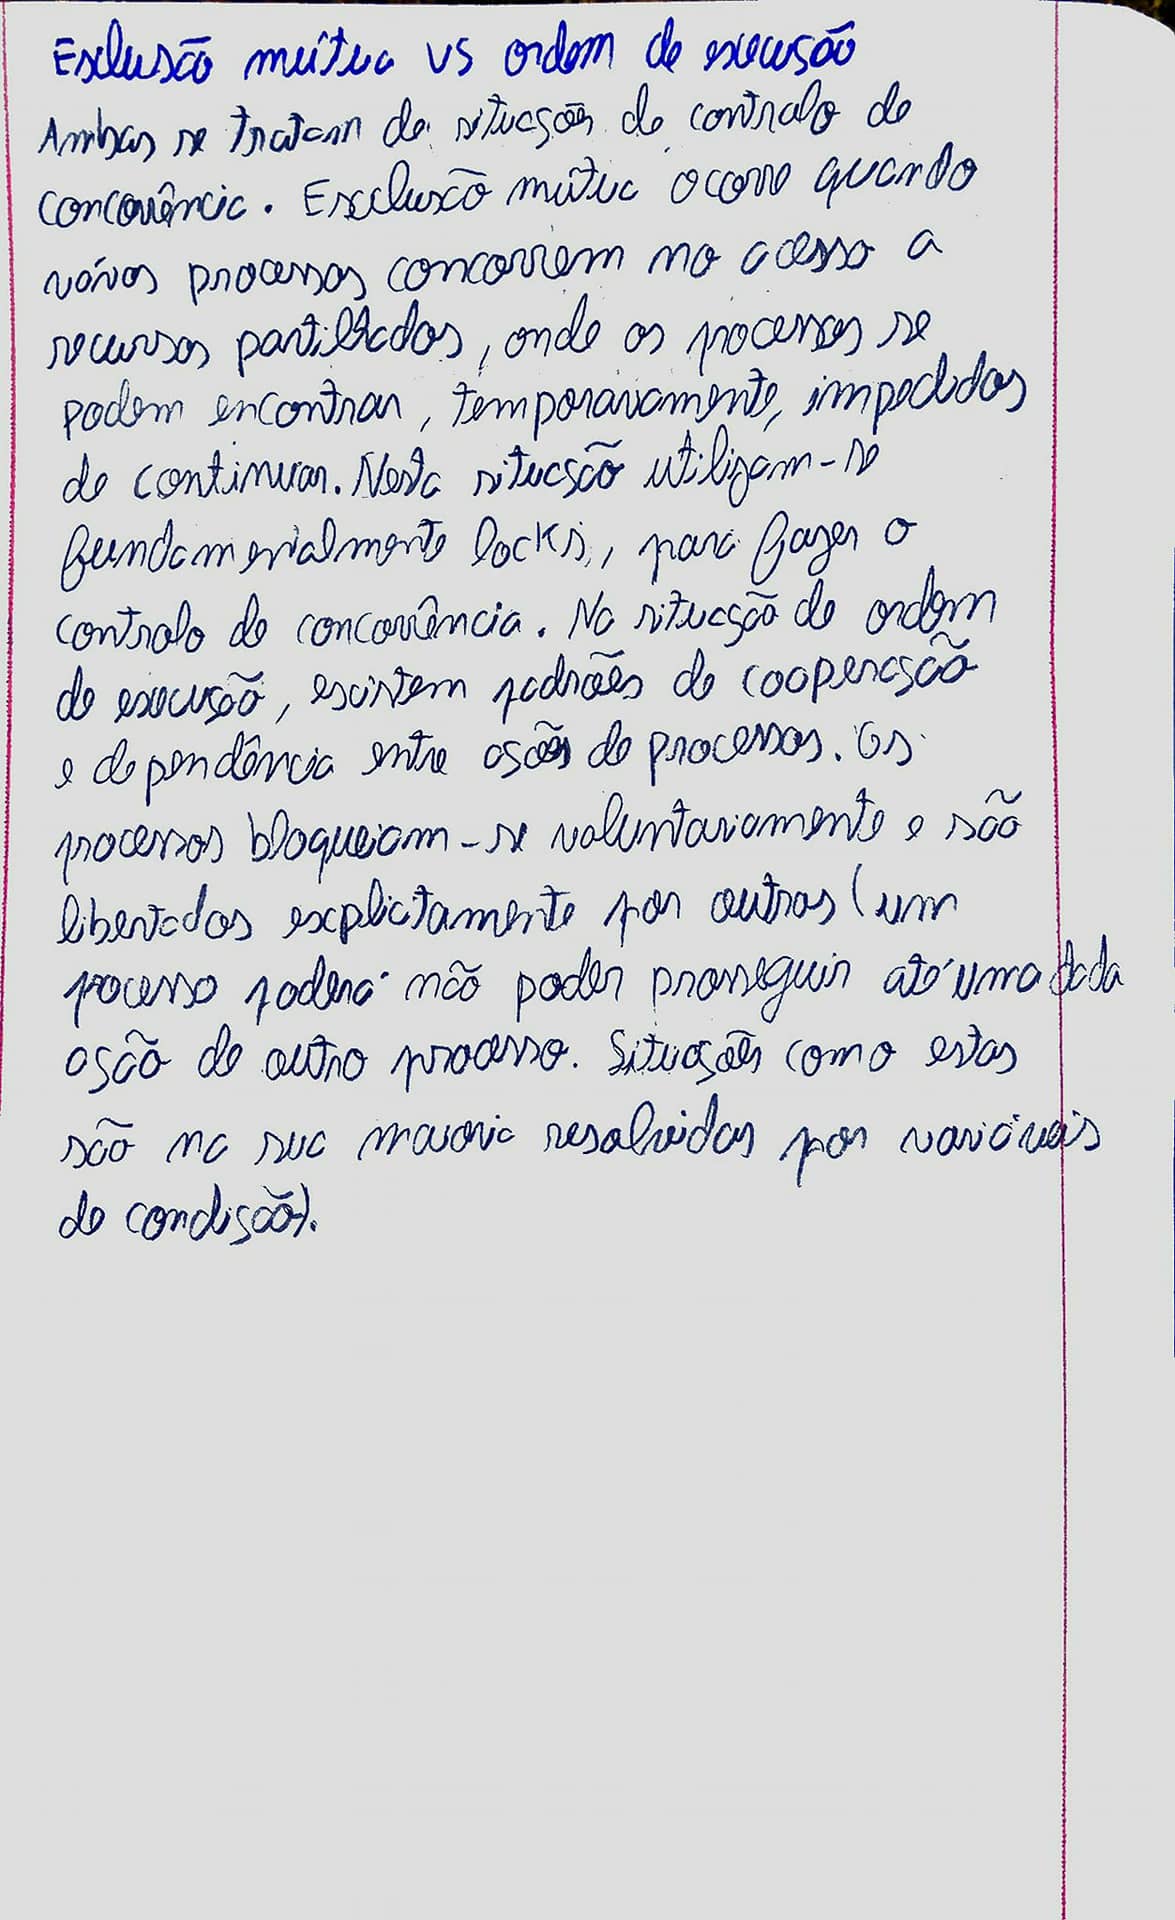 Exclusão mútua vs ordem de execução
Ambas se tratam de situações de controlo de
concorrência. Exclusão mútua ocorre quando
vários processos concorrem no acesso a
recursos partilhados, onde os processos se
podem encontrar, temporariamente, impedidos
de continuar. Nesta situação utilizam-se
fundamentalmente locks, para fazer o
controlo de concorrência. Na situação de ordem
de execução, existem padrões de cooperação
e dependência entre ações de processos. Os
processos bloqueiam-se voluntariamente e são
libertados explicitamente por outros (um
processo poderá não poder prosseguir até uma dada
ação de outro processo. Situações como estas
são na sua maioria resolvidas por variáveis
de condição).